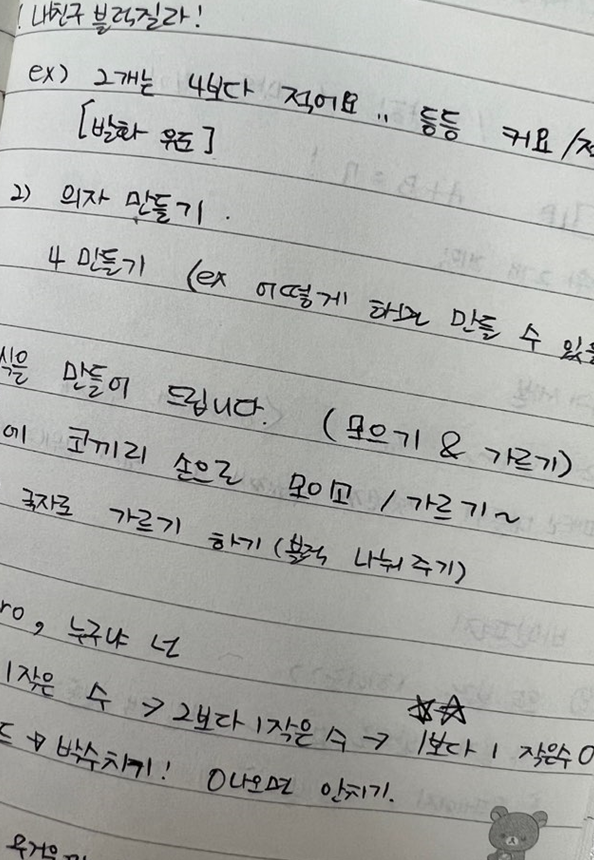 ! 내친구 블럭질라!
ex) 2개는 4보다 적어요 .. 등등 커요 /
[발화 유도]
2) 의자 만들기 .
4 만들기 (ex 어떻게 하면 만들 수 있을
식을 만들어 드립니다. (모으기 & 가르기)
에 코끼리 손으로 모이고 / 가르기~
국자로 가르기 하기 (블럭 나눠주기)
ro, 누구냐 넌
1작은 수 → 2보다 1작은 수 → 1보다 1 작은수 0
드 → 박수치기! 0나오면 안치기.